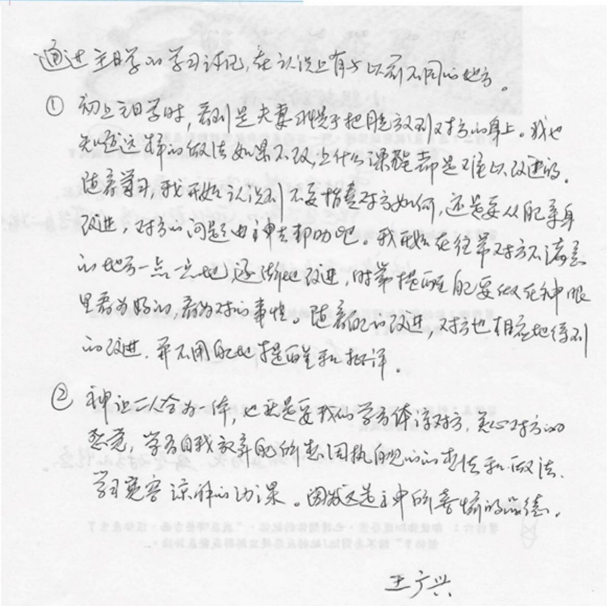 通过主日学的学习讨论,在认识上有与以前不同的地方。
① 初上主日学时,看到是夫妻习惯于把眼放到对方的身上。我也
知道这样的做法如果不改,上什么课程都是难以改进的。
随着学习,我开始认识到不要指责对方如何,还是要从自己本身
改进,对方的问题由神去帮助吧。我开始在往常对方不满意
的地方一点一点地逐渐地改进,时常提醒自己要做在神眼
里看为好的,看为对的事情。随着自己的改进,对方也相应地得到
的改进,并不用自己地提醒和批评。
② 神让二人合为一体,也就是要我们学习体谅对方,关心对方的
感觉,学习自我放弃自己所想固执自己的的想法和做法,
学习宽容谅解的功课。因为这是主神所喜悦的品德。
王广兴